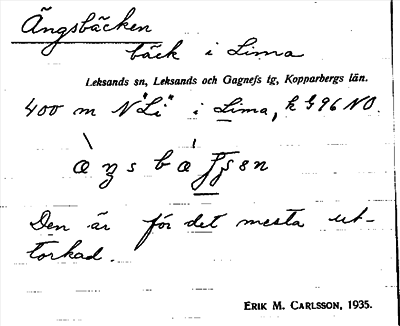 Ängsbäcken
bäck i Lima
Leksands sn, Leksands och Gagnefs tg, Kopparbergs län.
400 m N "Li" i Lima, k 96 NO.
Den är för det mesta ut-
torkad.
ERIK M. CARLSSON, 1935.